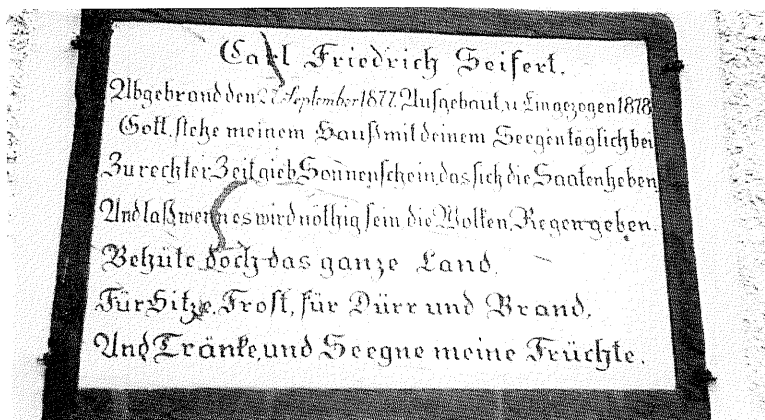 Carl Friedrich Seifert.
Abgebrand den 27. September 1877. Aufgebaut, u Eingezogen 1878
Gott, stehe meinem Hauß mit deinem Seegen täglich bei
Zu rechter Zeit gieb Sonnenschein, das sich die Saaten heben
Und laß wenn es wird nöthig sein die Wolken, Regen geben.
Behüte doch das ganze Land,
Für Hitze, Frost, für Dürr und Brand,
Und Tränke, und Seegne meine Früchte.